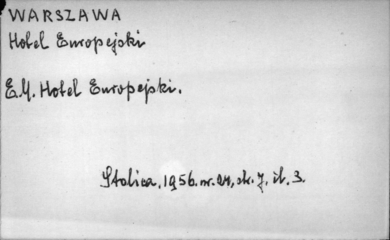 WARSZAWA
Hotel Europejski
E.M. Hotel Europejski.
Stolica, 1956. nr. 24, str. 7, il. 3.